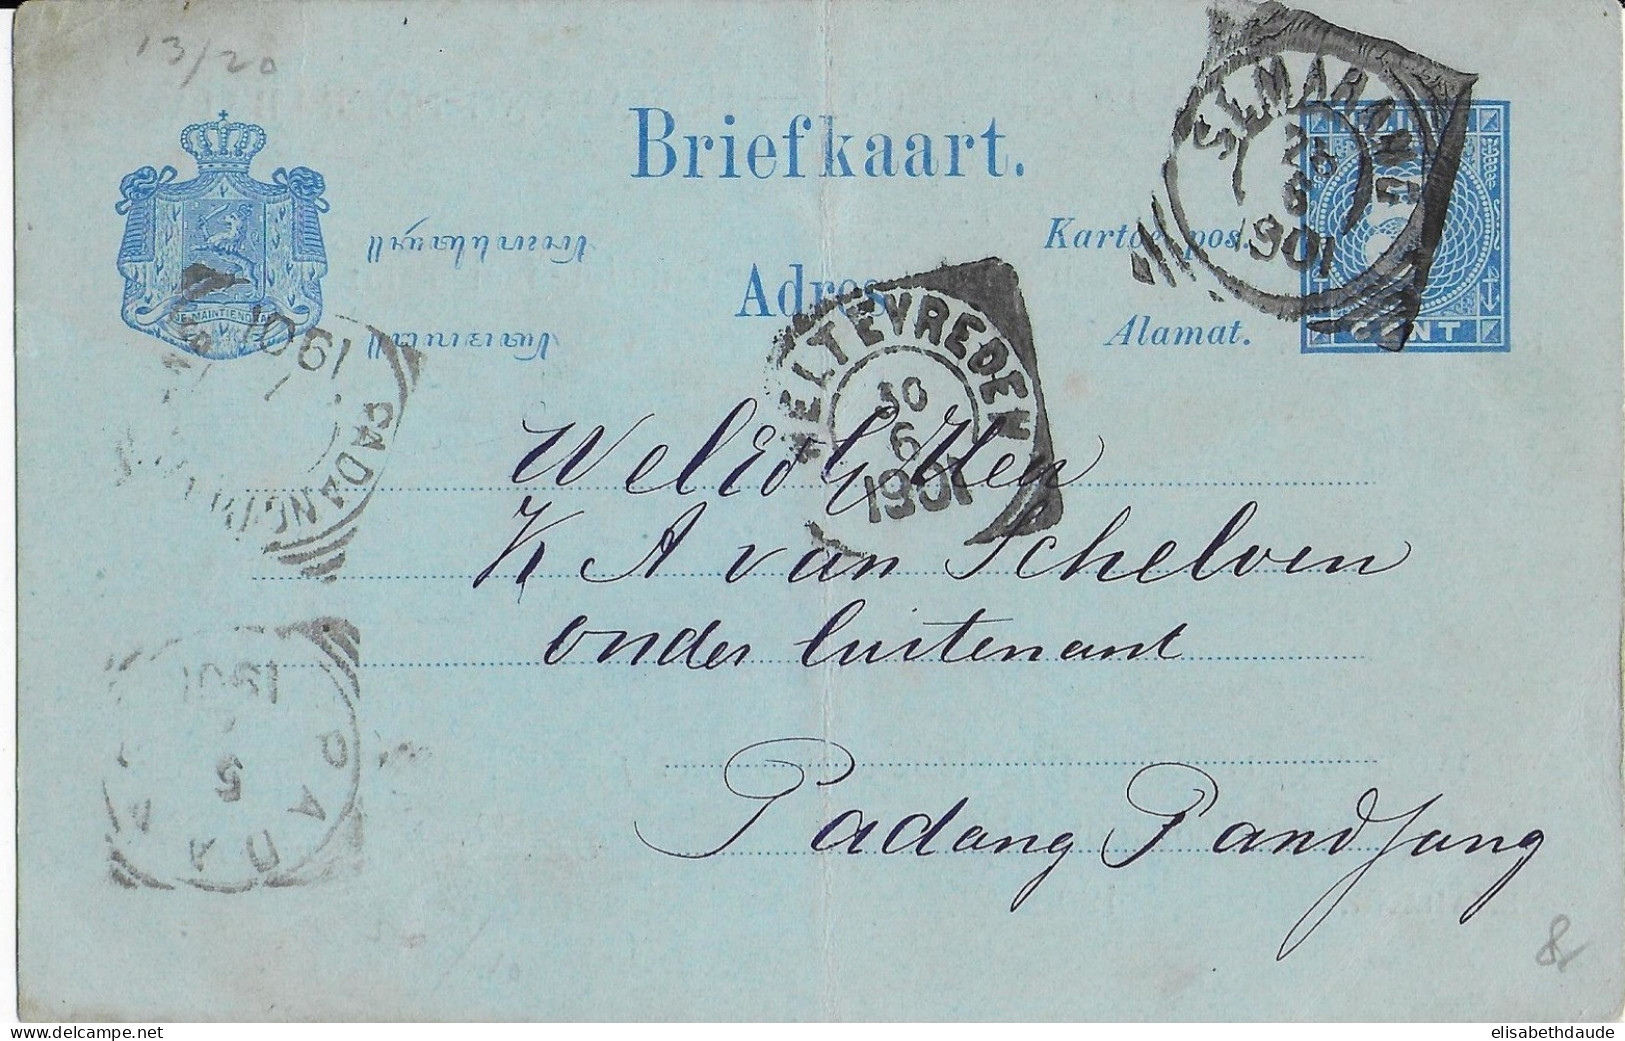 13/20
Briefkaart.
Kartoe pos
Adres
Alamat.
JE MAINTIENDRAI
CENT
SEMARANG
6
1901
WELTEVREDEN
30
6
1901
1901
PADANG
1901
5
PADA
WelEdG Heer
K A van Schelven
onder luitenant
Padang Pandjang
www.delcampe.net
elisabethdaude